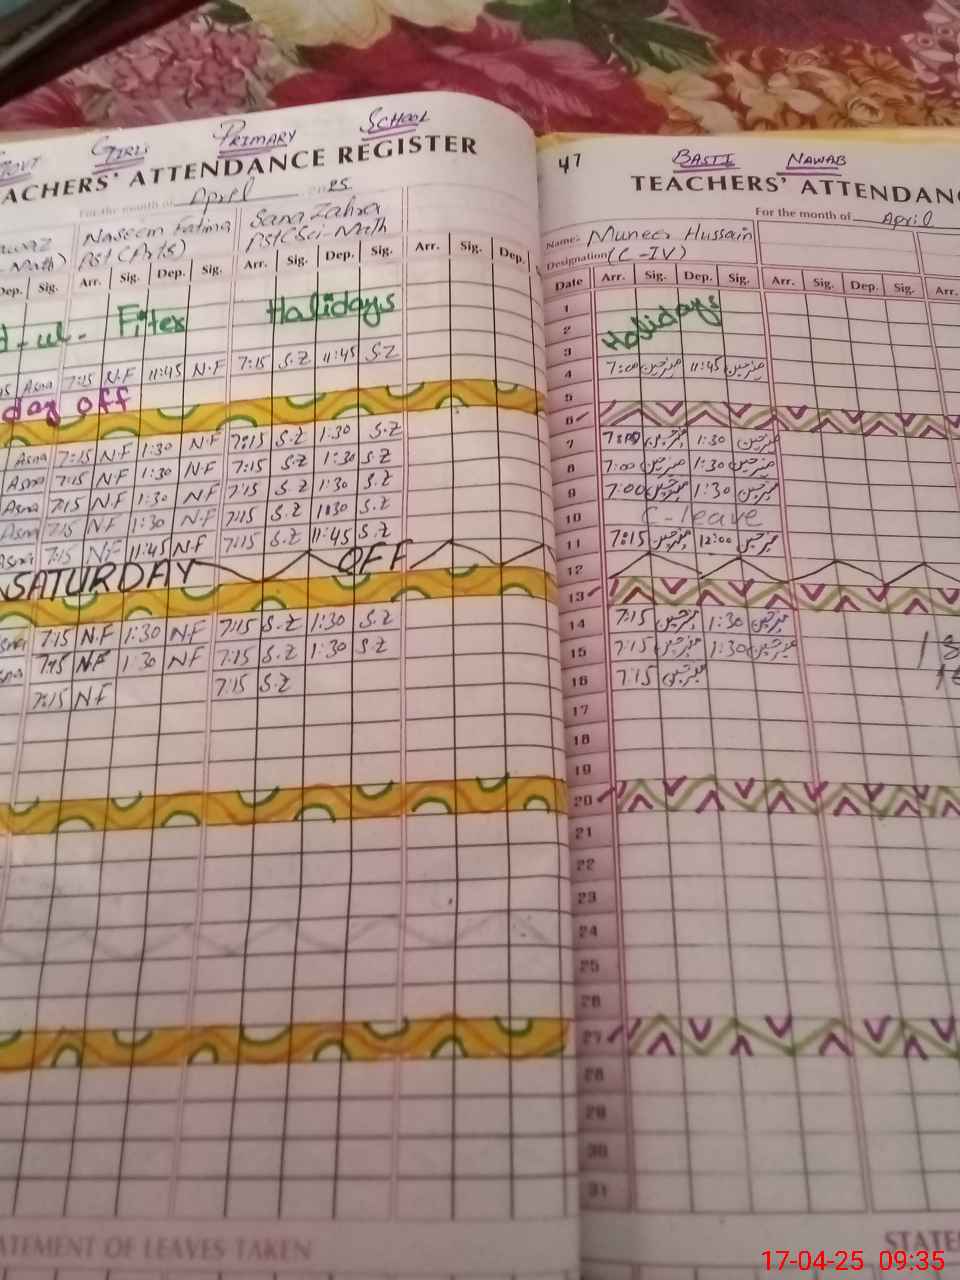 GIRLS PRIMARY SCHOOL
TEACHERS' ATTENDANCE REGISTER
For the month of April 2025
Naseem Fatima Sana Zahra
Math) Pst (Arts) Pst (Sci-Math
Dep. Sig. Arr. Sig. Dep. Sig. Arr. Sig. Dep. Sig. Arr. Sig. Dep.
d-ul- Fiter Holidays
Asna 7:15 N.F 11:45 N.F 7:15 S.Z 11:45 S.Z
day off
Asna 7:15 N.F 1:30 N.F 7:15 S.Z 1:30 S.Z
Asna 7:15 N.F 1:30 N.F 7:15 S.Z 1:30 S.Z
Asna 7:15 N.F 1:30 N.F 7:15 S.Z 1:30 S.Z
Asna 7:15 N.F 1:30 N.F 7:15 S.Z 1:30 S.Z
Asna 7:15 N.F 11:45 N.F 7:15 S.Z 11:45 S.Z
SATURDAY OFF
7:15 N.F 1:30 NF 7:15 S.Z 1:30 S.Z
7:15 NF 1:30 NF 7:15 S.Z 1:30 S.Z
7:15 NF 7:15 S.Z
ATEMENT OF LEAVES TAKEN
47 BASTI NAWAB
TEACHERS' ATTENDANC
For the month of April
Name:- Muneer Hussain
Designation (C-IV)
Date Arr. Sig. Dep. Sig. Arr. Sig. Dep. Sig. Arr.
1
2 Holidays
3
4 7:00 11:45
5
6
7 7:00 1:30
8 7:00 1:30
9 7:00 1:30
10 C-leave
11 7:15 12:00
12
13
14 7:15 1:30
15 7:15 1:30
16 7:15
17
18
19
20
21
22
23
24
25
26
27
28
29
30
31
STATE
17-04-25 09:35